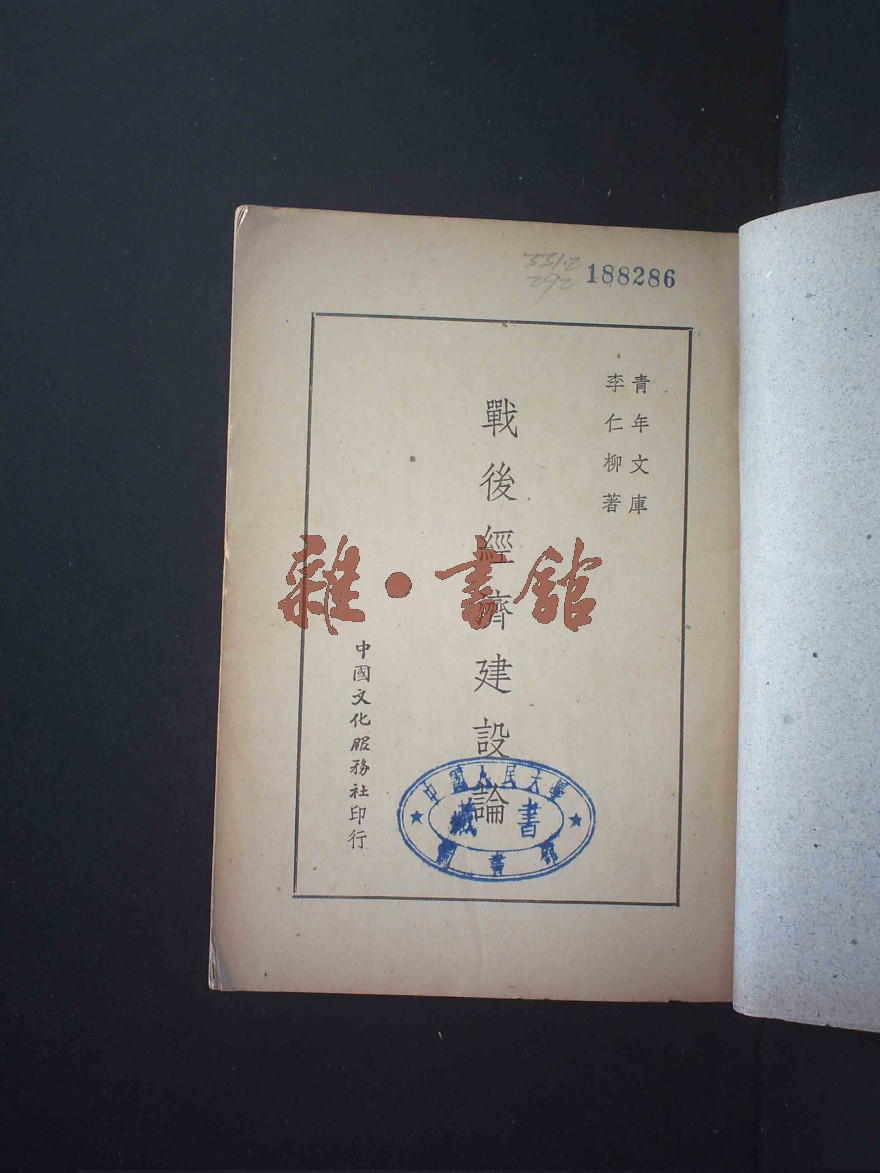 331.2
292
188286
青年文庫
李仁柳著
戰後經濟建設論
中國文化服務社印行
雜·書館
中國人民大學
藏書
圖書部